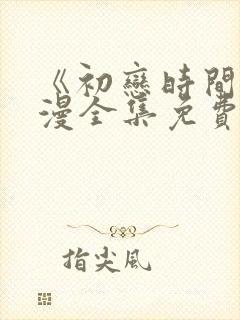 《初戀時間
漫全集免費
指尖風